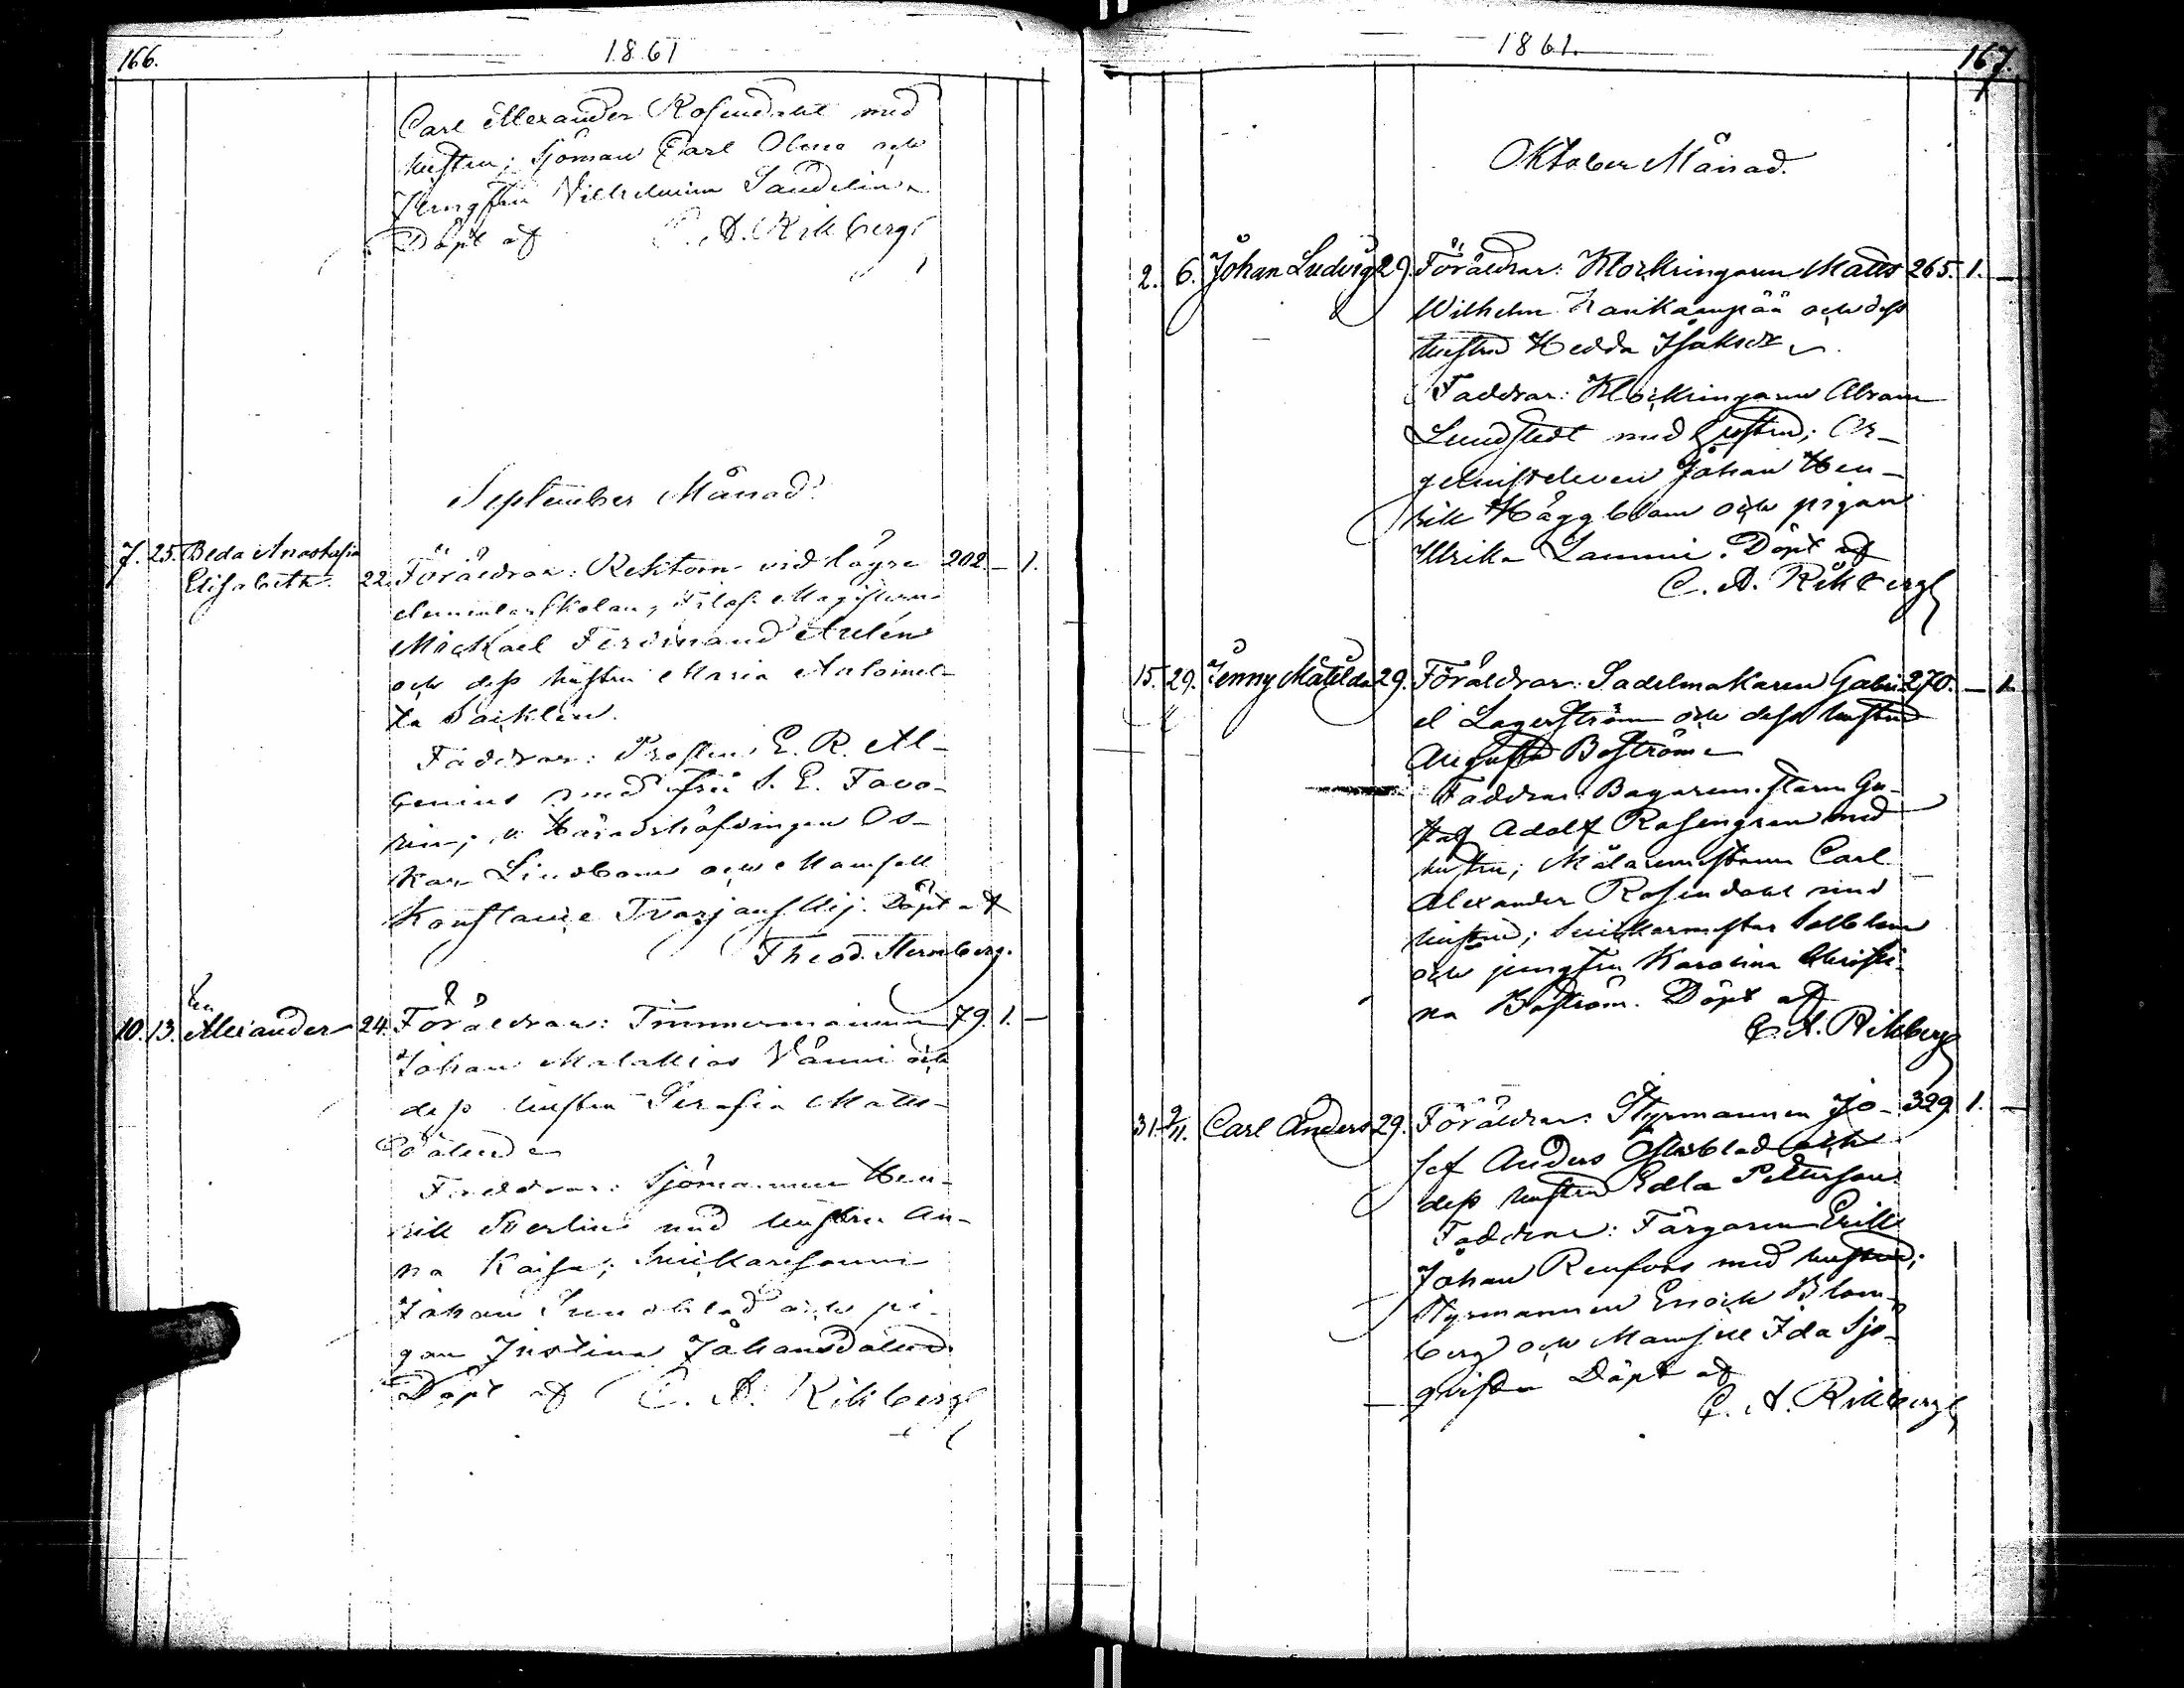 166.
1861
Carl Alexander Rosendahl med
hustru; Sjöman Carl och
Jungfru Vilhelmina Sandelin
Döpt af C. A. Rikberg
September Månad
7. 25. Beda Anastasia
Elisabeth 22. Föräldrar: Rektorn vid lägre 202. — 1.
elementarskolan, Filos. Magistern
Mickael Ferdinand Aulén
och dess hustru Maria Antoinet-
ta
Faddrar: Prosten E. R. Al-
cenius med fru S. E. Favo-
rin; v. Häradshöfdingen Os-
kar Lindbom och Mamsell
Konstance Döpt af
Theod. Sternberg.
10. 13. Alexander 24. Föräldrar: Timmermannen 79. 1. —
Johan Malakias Vänni och
dess hustru Serafia Matts-
Faddrar: Sjömannen Hen-
rik med hustru An-
na Kaisa; Snickaresonen
Johan Sundblad och pi-
gan Justina Johansdotter
Döpt af C. A. Rikberg
1861.
167.
Oktober Månad.
2. 6. Johan Ludvig 29. Föräldrar: Klockringaren Matts 265. 1. —
Wilhelm och dess
hustru Hedda Isaksdr
Faddrar: Klockringaren Abram
Lundstedt med hustru; Or-
gelnisteleven Johan Hen-
rik Häggblom och pigan
Ulrika Lammi. Döpt af
C. A. Rikberg
15. 29. Jenny Matilda 29. Föräldrar: Sadelmakaren Gabri- 270. — 1.
el Lagerström och dess hustru
Augusta Boström
Faddrar: Bagaremästaren Gu-
staf Adolf Rosengren med
hustru; Målaremästaren Carl
Alexander Rosendahl med
hustru; Snickarmästar
och jungfru Karolina Christi-
na Boström. Döpt af
C. A. Rikberg
31. 9/11. Carl Anders 29. Föräldrar: Styrmannen Jo- 329. 1. —
sef Anders Österblad och
dess hustru Edla Petterson
Faddrar: Färgaren Erik
Johan Renfors med hustru;
Styrmannen Enoch Blom-
berg och Mamsell Ida Sjö-
qvist Döpt af
C. A. Rikberg